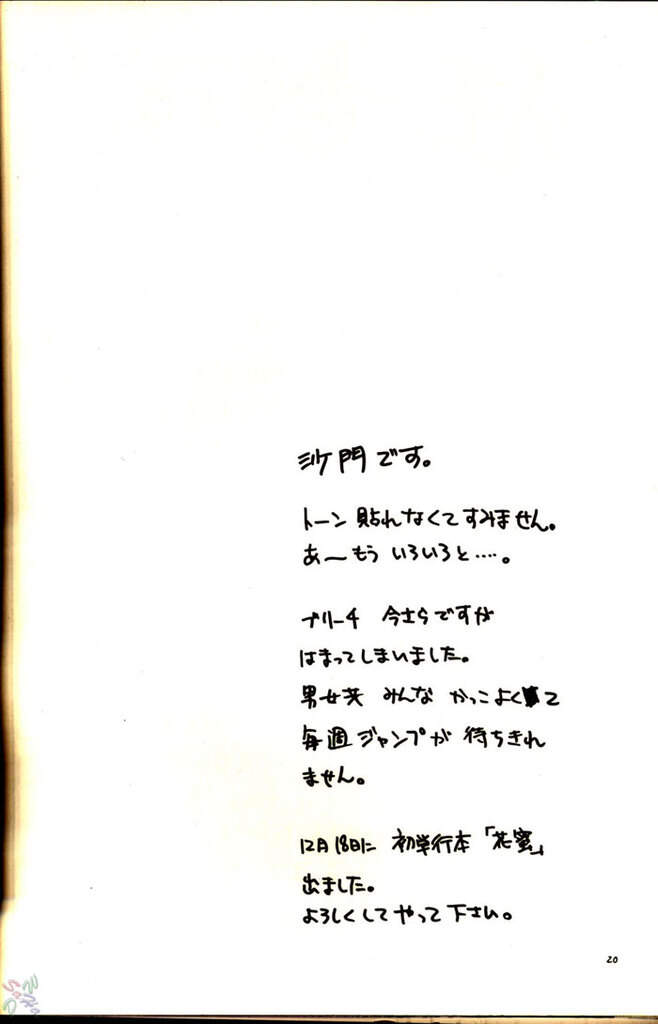 沙門です。
トーン 貼れなくてすみません。
あ〜もう いろいろと‥‥。
ブリーチ 今さらですが
はまってしまいました。
男女共 みんな かっこよくて
毎週ジャンプが 待ちきれ
ません。
12月18日に 初単行本「花蜜」
出ました。
よろしくしてやって下さい。
20